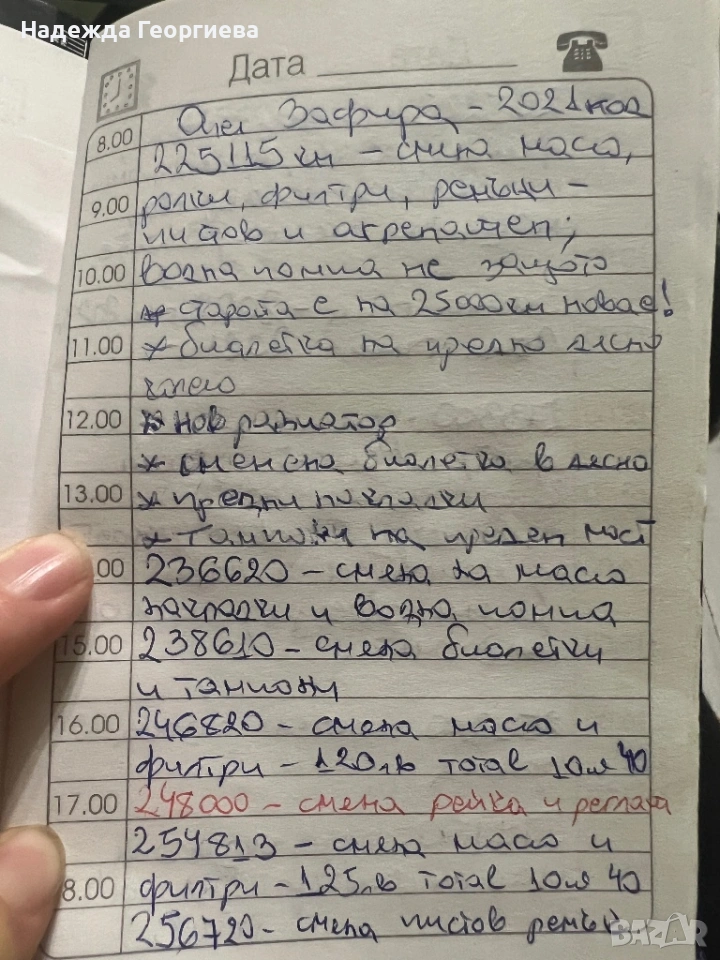 Надежда Георгиева
Дата
8.00 Опел Зафира - 2021 год
225115 км - смяна масло,
9.00 ролки, филтри, ремъци -
пистов и агрегатен;
10.00 водна помпа не защото
старата е на 25000 км нова е!
11.00 * биалетка на предно дясно
колело
12.00 * нов радиатор
* сменена биалетка в дясно
13.00 * предни накладки
* тампони на преден мост
00 236620 - смяна на масло
накладки и водна помпа
15.00 238610 - смяна биалетки
и тампони
16.00 246820 - смяна масло и
филтри - 120лв total 10w 40
17.00 248000 - смяна рейка и реглаж
254813 - смяна масло и
8.00 филтри - 125лв total 10w 40
256720 - смяна пистов ремък
BAZAR